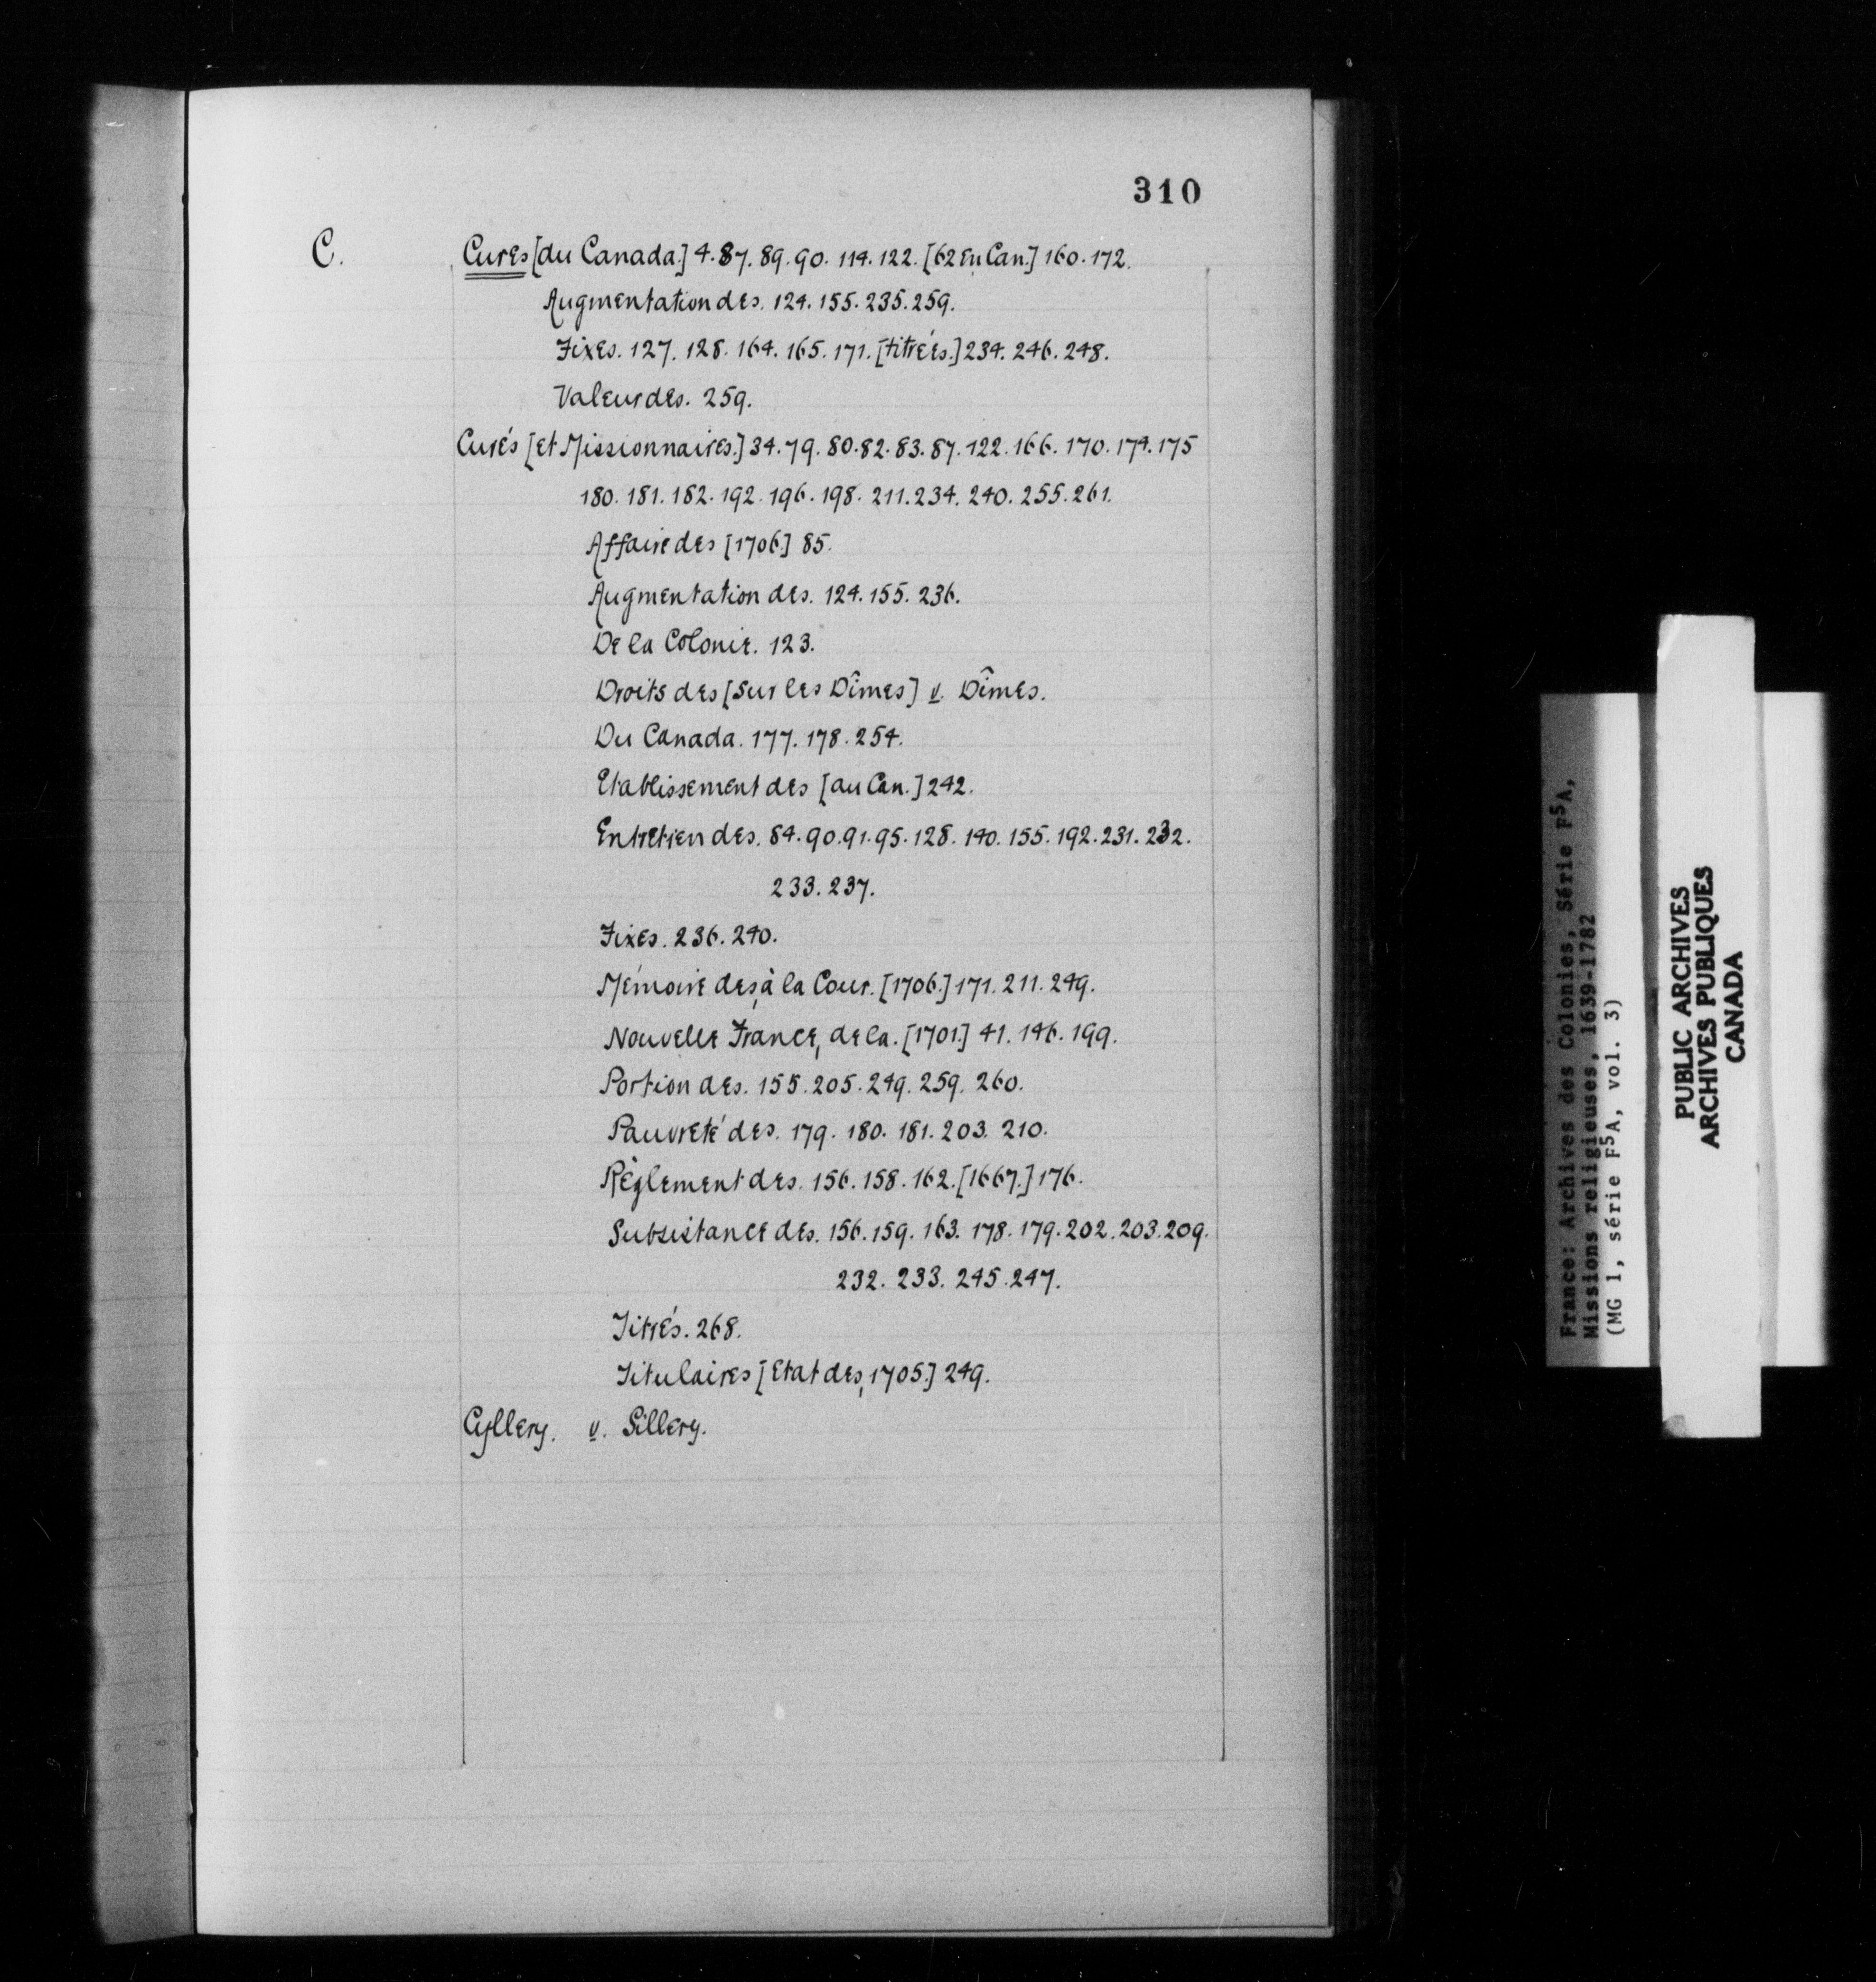 310
C.
Cures [du Canada.] 4.87.89.90.114.122.[62 En Can.] 160.172.
Augmentation des. 124.155.235.259.
Fixes. 127.128.164.165.171.[titrées.] 234.246.248.
Valeur des. 259.
Curés [et Missionnaires.] 34.79.80.82.83.87.122.166.170.174.175
180.181.182.192.196.198.211.234.240.255.261.
Affaire des [1706.] 85.
Augmentation des. 124.155.236.
De la Colonie. 123.
Droits des [sur les Dîmes] v. Dîmes.
Du Canada. 177.178.254.
Etablissement des [au Can.] 242.
Entretien des. 84.90.91.95.128.140.155.192.231.232.
233.237.
Fixes. 236.240.
Mémoire des, à la Cour. [1706.] 171.211.249.
Nouvelle France, de la. [1701.] 41.146.199.
Portion des. 155.205.249.259.260.
Pauvreté des. 179.180.181.203.210.
Règlement des. 156.158.162.[1667.] 176.
Subsistance des. 156.159.163.178.179.202.203.209.
232.233.245.247.
Titrés. 268.
Titulaires [Etat des, 1705.] 249.
Cyllery. v. Sillery.
France: Archives des Colonies, Série F5A,
Missions religieuses, 1639-1782
(MG 1, série F5A, vol. 3)
PUBLIC ARCHIVES
ARCHIVES PUBLIQUES
CANADA